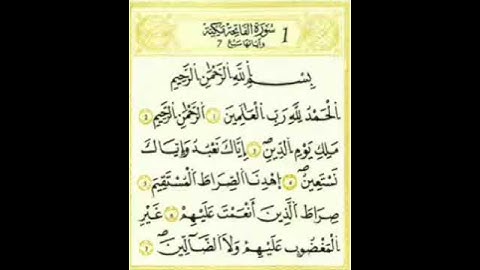 سُورَةُ الْفَاتِحَةِ مَكِّيَّة 1
وَآيَاتُهَا سَبْع 7
بِسْمِ اللَّهِ الرَّحْمَٰنِ الرَّحِيمِ
الْحَمْدُ لِلَّهِ رَبِّ الْعَالَمِينَ ١ الرَّحْمَٰنِ الرَّحِيمِ
مَلِكِ يَوْمِ الدِّينِ إِيَّاكَ نَعْبُدُ وَإِيَّاكَ
نَسْتَعِينُ اهْدِنَا الصِّرَاطَ الْمُسْتَقِيمَ
صِرَاطَ الَّذِينَ أَنْعَمْتَ عَلَيْهِمْ غَيْرِ
الْمَغْضُوبِ عَلَيْهِمْ وَلَا الضَّالِّينَ